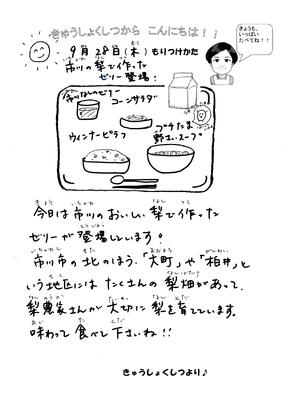 きゅうしょくしつから こんにちは！！
きょうも、
いっぱい
たべてね！！
9月28日(木) もりつけかた
市川の梨で作った
ゼリー登場！
市川なしのゼリー
コーンサラダ
ウィンナーピラフ
プチたま
野菜スープ
今日は市川のおいしい梨で作った
ゼリーが登場しています。
市川市の北のほう、「大町」や「柏井」と
いう地区にはたくさんの梨畑があって、
梨農家さんが大切に梨を育てています。
味わって食べて下さいね！！
きゅうしょくしつより♪